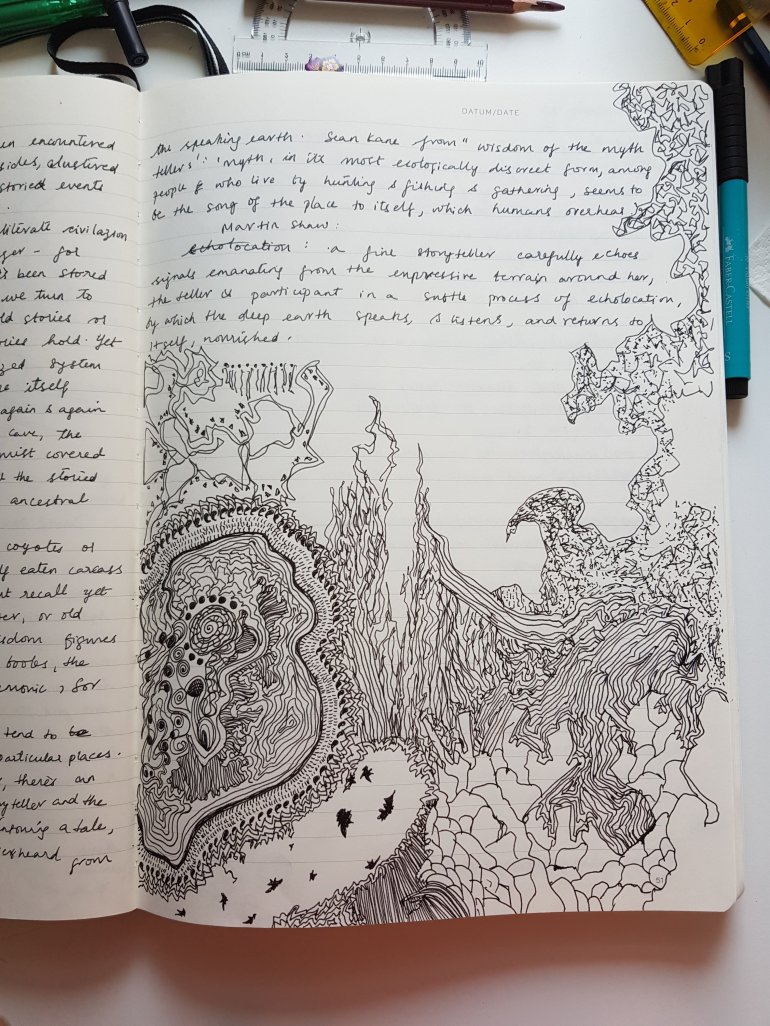 en encountered
sides, clustered
storied events
literate civilazion
ger - for
's been stored
we turn to
ld stories or
ories hold. Yet
zed system
e itself
again & again
cave, the
mist covered
t the storied
ancestral
coyotes or
lf eaten carcass
t recall yet
er, or old
sdom figures
books, the
emonic, for
tend to be
particular places.
, there's an
yteller and the
intoning a tale,
overheard from
DATUM/DATE
the speaking earth. Sean Kane from " wisdom of the myth
tellers': 'myth, in its most ecologically discreet form, among
people & who live by hunting & fishing & gathering, seems to
be the song of the place to itself, which humans overhear,
Martin Shaw:
echolocation: a fine storyteller carefully echoes
signals emanating from the expressive terrain around her,
the teller is participant in a subtle process of echolocation,
by which the deep earth speaks, & listens, and returns to
itself, nourished.
51
FABER-CASTELL